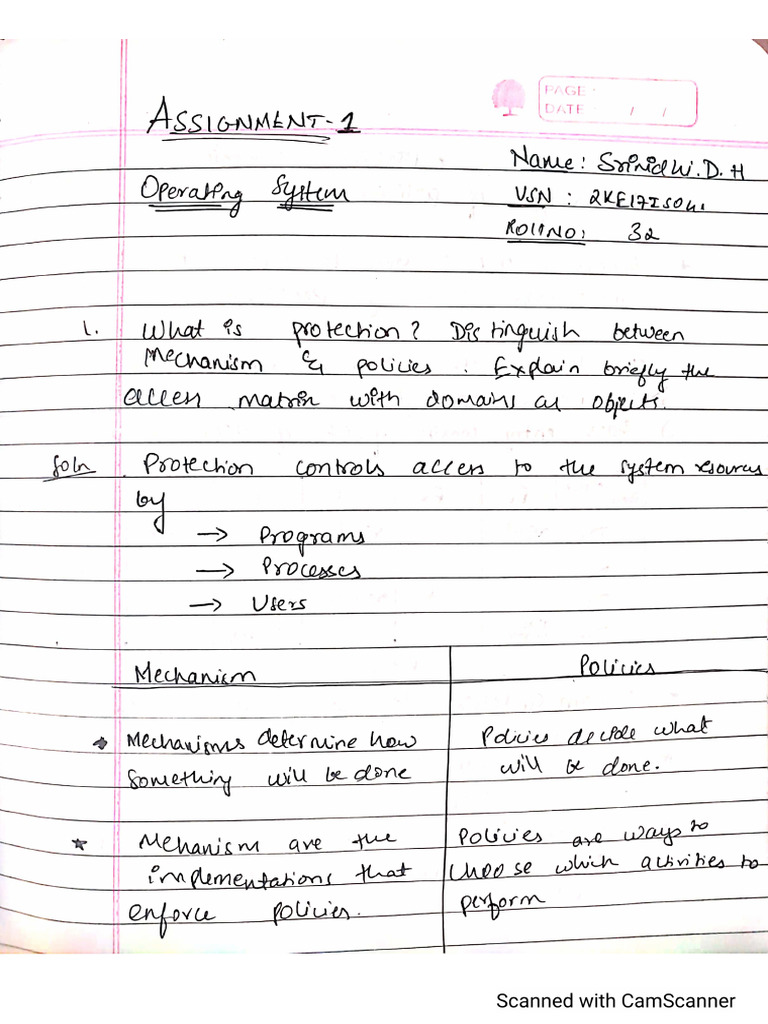 PAGE :
DATE : / /
ASSIGNMENT-1
Name: Srinidhi.D.H
Operating System
USN : 2KE17IS041
Roll NO: 32
1. What is protection? Distinguish between
Mechanism & policies. Explain briefly the
access matrix with domains as objects.
Soln Protection controls access to the system resources
by
→ Programs
→ Processes
→ Users
Mechanism Policies
* Mechanisms determine how Policies decide what
something will be done will be done.
* Mehanism are the Policies are ways to
implementations that choose which activities to
enforce policies. perform
Scanned with CamScanner